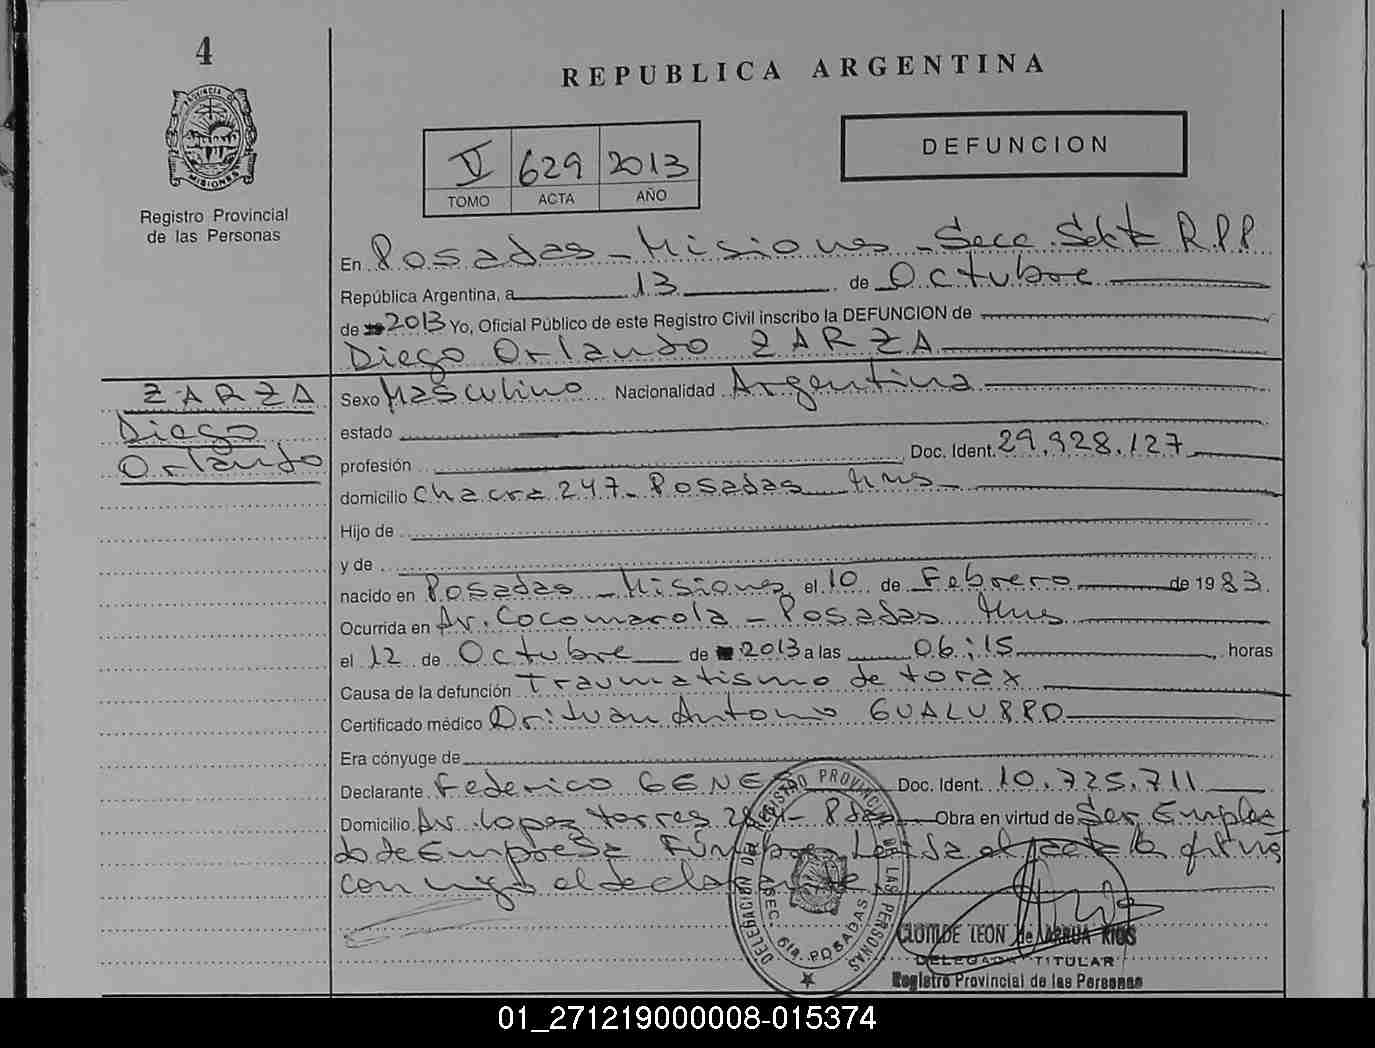 4
PROVINCIA DE
MISIONES
Registro Provincial
de las Personas
REPUBLICA ARGENTINA
V 629 2013
TOMO ACTA AÑO
DEFUNCION
En Posadas - Misiones - Secc. Sexta R.P.P.
República Argentina, a 13 de Octubre
de 2013 Yo, Oficial Público de este Registro Civil inscribo la DEFUNCION de
Diego Orlando ZARZA
ZARZA
Diego
Orlando
Sexo Masculino Nacionalidad Argentina
estado
profesión Doc. Ident. 29.928.127
domicilio Chacra 247 - Posadas Mnes
Hijo de
y de
nacido en Posadas - Misiones el 10 de Febrero de 1983
Ocurrida en Av. Cocomarola - Posadas Mnes
el 12 de Octubre de 2013 a las 06:15 horas
Causa de la defunción Traumatismo de torax
Certificado médico Dr. Juan Antonio
Era cónyuge de
Declarante Federico GENE Doc. Ident. 10.725.711
Domicilio Av. Lopez Torres - Pdas Obra en virtud de Ser Emplea
do de Empresa Leida el acta la firma
conmigo el declarante
DELEGACION DEL REGISTRO PROVINCIAL DE LAS PERSONAS
SEC. 6ta. POSADAS
CLOTILDE LEON de ARRUA RIOS
DELEGADA TITULAR
Registro Provincial de las Personas
01_271219000008-015374